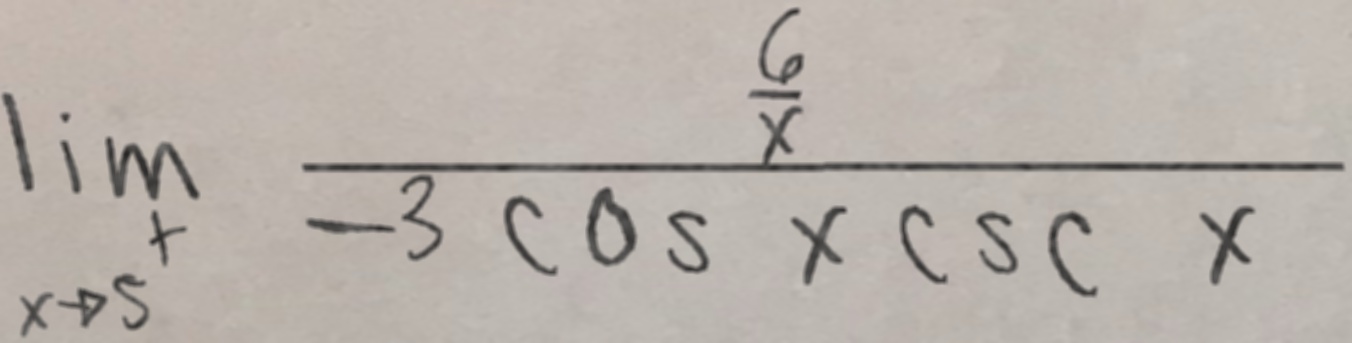 \lim_{x \to 5^+} \frac{\frac{6}{x}}{-3 \cos x \csc x}